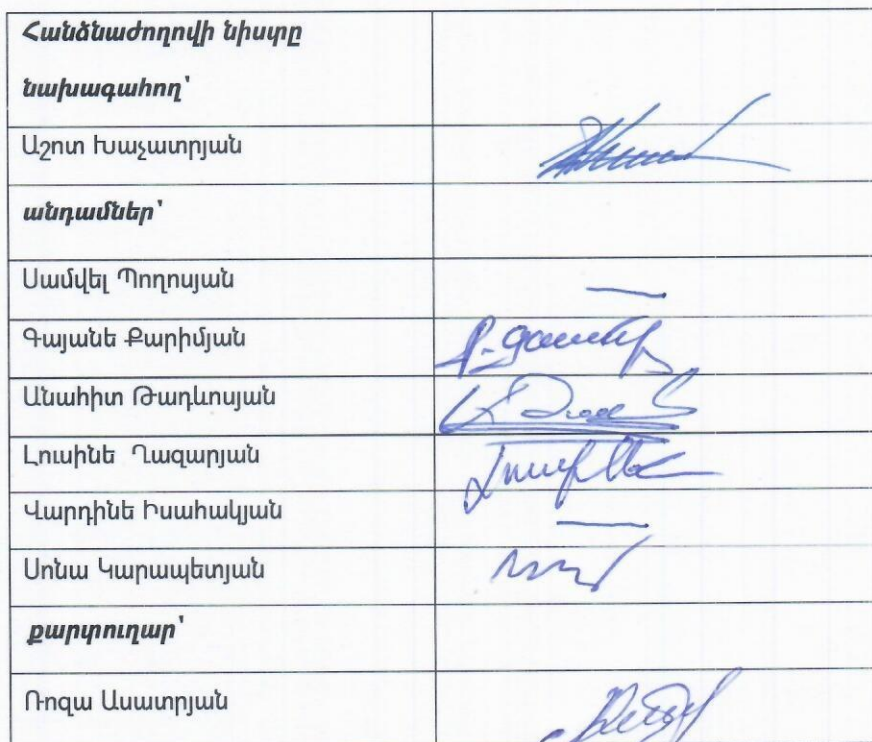 Հանձնաժողովի նիստը
նախագահող՝
Աշոտ Խաչատրյան
անդամներ՝
Սամվել Պողոսյան
Գայանե Քարիմյան
Անահիտ Թադևոսյան
Լուսինե Ղազարյան
Վարդինե Իսահակյան
Սոնա Կարապետյան
քարտուղար՝
Ռոզա Ասատրյան